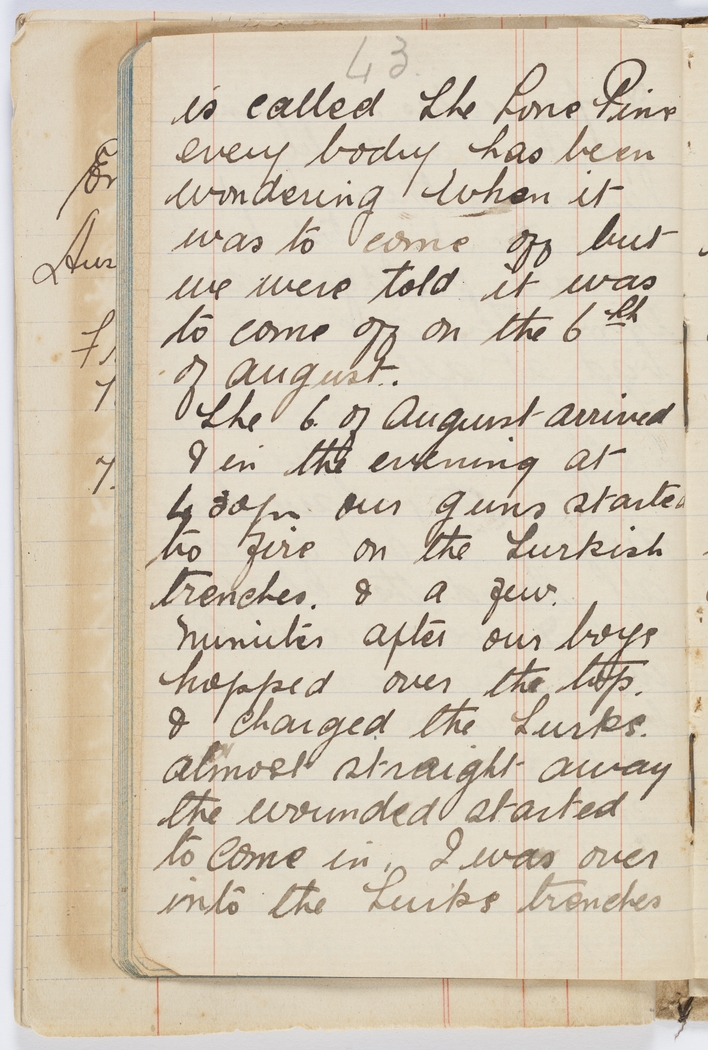 43
is called the Lone Pine
every body has been
wondering when it
was to come off but
we were told it was
to come off on the 6th
of august.
The 6. of August arrived
& in the evening at
4 30pm our guns started
to fire on the Turkish
trenches. & a few.
minutes after our boys
hopped over the top.
& charged the Turks.
almost straight away
the wounded started
to come in. I was over
into the Turks trenches